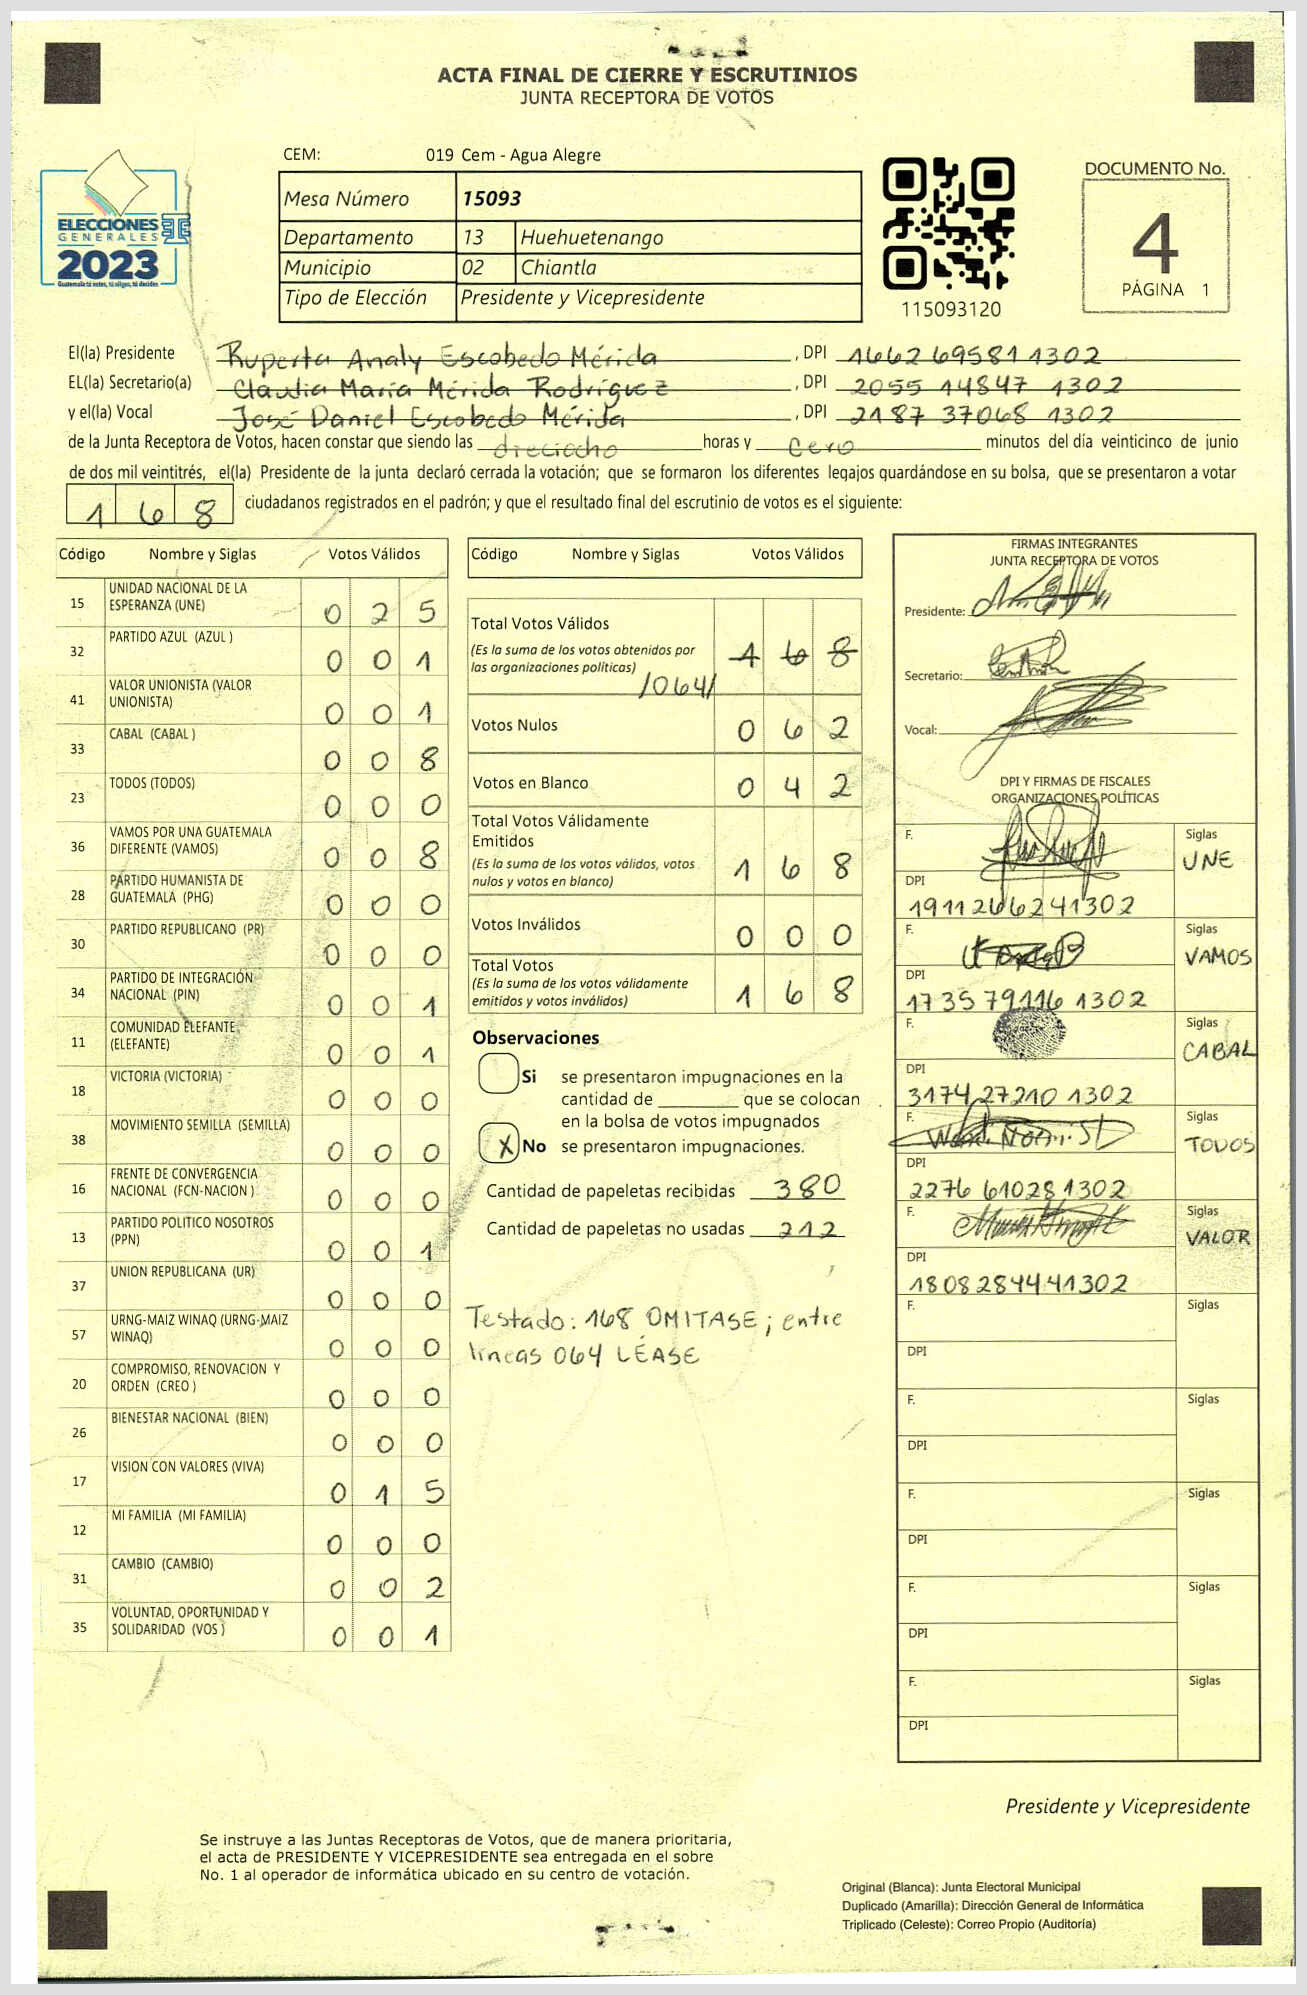 ACTA FINAL DE CIERRE Y ESCRUTINIOS
JUNTA RECEPTORA DE VOTOS
CEM: 019 Cem - Agua Alegre
ELECCIONES
GENERALES
2023
Guatemala tú votes, tú eliges, tú decides
Mesa Número 15093
Departamento 13 Huehuetenango
Municipio 02 Chiantla
Tipo de Elección Presidente y Vicepresidente
115093120
DOCUMENTO No.
4
PÁGINA 1
El(la) Presidente Ruperta Analy Escobedo Mérida , DPI 1662 69581 1302
EL(la) Secretario(a) Claudia María Mérida Rodríguez , DPI 2055 14847 1302
y el(la) Vocal José Daniel Escobedo Mérida , DPI 2187 37068 1302
de la Junta Receptora de Votos, hacen constar que siendo las dieciocho horas y cero minutos del día veinticinco de junio
de dos mil veintitrés, el(la) Presidente de la junta declaró cerrada la votación; que se formaron los diferentes legajos quardándose en su bolsa, que se presentaron a votar
1 6 8 ciudadanos registrados en el padrón; y que el resultado final del escrutinio de votos es el siguiente:
Código Nombre y Siglas Votos Válidos
15 UNIDAD NACIONAL DE LA
ESPERANZA (UNE) 0 2 5
32 PARTIDO AZUL (AZUL ) 0 0 1
41 VALOR UNIONISTA (VALOR
UNIONISTA) 0 0 1
33 CABAL (CABAL ) 0 0 8
23 TODOS (TODOS) 0 0 0
36 VAMOS POR UNA GUATEMALA
DIFERENTE (VAMOS) 0 0 8
28 PARTIDO HUMANISTA DE
GUATEMALA (PHG) 0 0 0
30 PARTIDO REPUBLICANO (PR) 0 0 0
34 PARTIDO DE INTEGRACIÓN
NACIONAL (PIN) 0 0 1
11 COMUNIDAD ELEFANTE
(ELEFANTE) 0 0 1
18 VICTORIA (VICTORIA) 0 0 0
38 MOVIMIENTO SEMILLA (SEMILLA) 0 0 0
16 FRENTE DE CONVERGENCIA
NACIONAL (FCN-NACION ) 0 0 0
13 PARTIDO POLITICO NOSOTROS
(PPN) 0 0 1
37 UNION REPUBLICANA (UR) 0 0 0
57 URNG-MAIZ WINAQ (URNG-MAIZ
WINAQ) 0 0 0
20 COMPROMISO, RENOVACION Y
ORDEN (CREO ) 0 0 0
26 BIENESTAR NACIONAL (BIEN) 0 0 0
17 VISION CON VALORES (VIVA) 0 1 5
12 MI FAMILIA (MI FAMILIA) 0 0 0
31 CAMBIO (CAMBIO) 0 0 2
35 VOLUNTAD, OPORTUNIDAD Y
SOLIDARIDAD (VOS ) 0 0 1
Código Nombre y Siglas Votos Válidos
Total Votos Válidos
(Es la suma de los votos obtenidos por
las organizaciones políticas) 1 6 8
/064/
Votos Nulos 0 6 2
Votos en Blanco 0 4 2
Total Votos Válidamente
Emitidos
(Es la suma de los votos válidos, votos
nulos y votos en blanco) 1 6 8
Votos Inválidos 0 0 0
Total Votos
(Es la suma de los votos válidamente
emitidos y votos inválidos) 1 6 8
Observaciones
Si se presentaron impugnaciones en la
cantidad de ________ que se colocan
en la bolsa de votos impugnados
X No se presentaron impugnaciones.
Cantidad de papeletas recibidas 380
Cantidad de papeletas no usadas 212
Testado: 168 OMITASE; entre
lineas 064 LÉASE
FIRMAS INTEGRANTES
JUNTA RECEPTORA DE VOTOS
Presidente:
Secretario:
Vocal:
DPI Y FIRMAS DE FISCALES
ORGANIZACIONES POLÍTICAS
F. Siglas
UNE
DPI
1911266241302
F. Siglas
VAMOS
DPI
1735 79116 1302
F. Siglas
CABAL
DPI
3174 27210 1302
F. Siglas
TODOS
DPI
2276 61028 1302
F. Siglas
VALOR
DPI
1808284441302
F. Siglas
DPI
F. Siglas
DPI
F. Siglas
DPI
F. Siglas
DPI
F. Siglas
DPI
Presidente y Vicepresidente
Se instruye a las Juntas Receptoras de Votos, que de manera prioritaria,
el acta de PRESIDENTE Y VICEPRESIDENTE sea entregada en el sobre
No. 1 al operador de informática ubicado en su centro de votación.
Original (Blanca): Junta Electoral Municipal
Duplicado (Amarilla): Dirección General de Informática
Triplicado (Celeste): Correo Propio (Auditoría)